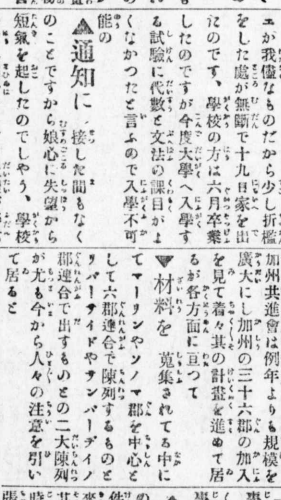 エが我儘なものだから少し折檻
をした處が無斷で十九日家を出
たのです、學校の方は六月卒業
したのですが今度大學へ入學す
る試驗に代數と文法の課目がよ
くなかつたと言ふので入學不可
能の
▲通知に 接した間もなく
のことですから娘心に失望から
短氣を起したのでしやう、學校
加州共進會は例年よりも規模を
廣大にし加州の三十六郡の加入
を見て着々其の計畫を進めて居
るが各方面に亘つて
▼材料を 蒐集されてる中に
てマーリンやソノマ郡を中心と
して六郡連合で陳列するものと
リバーサイドやサンバーデイノ
郡連合で出すものとの二大陳列
が尤も今から人々の注意を引い
て居ると